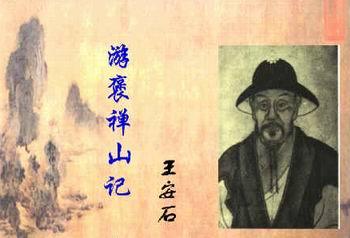 游褒禅山记
王安石